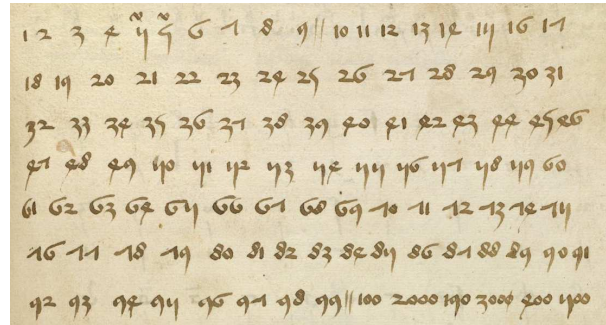 1 2 3 4 5 5 6 7 8 9 // 10 11 12 13 14 15 16 17
18 19 20 21 22 23 24 25 26 27 28 29 30 31
32 33 34 35 36 37 38 39 40 41 42 43 44 45 46
47 48 49 50 51 52 53 54 55 56 57 58 59 60
61 62 63 64 65 66 67 68 69 70 71 72 73 74 75
76 77 78 79 80 81 82 83 84 85 86 87 88 89 90 91
92 93 94 95 96 97 98 99 // 100 2000 3000 400 500